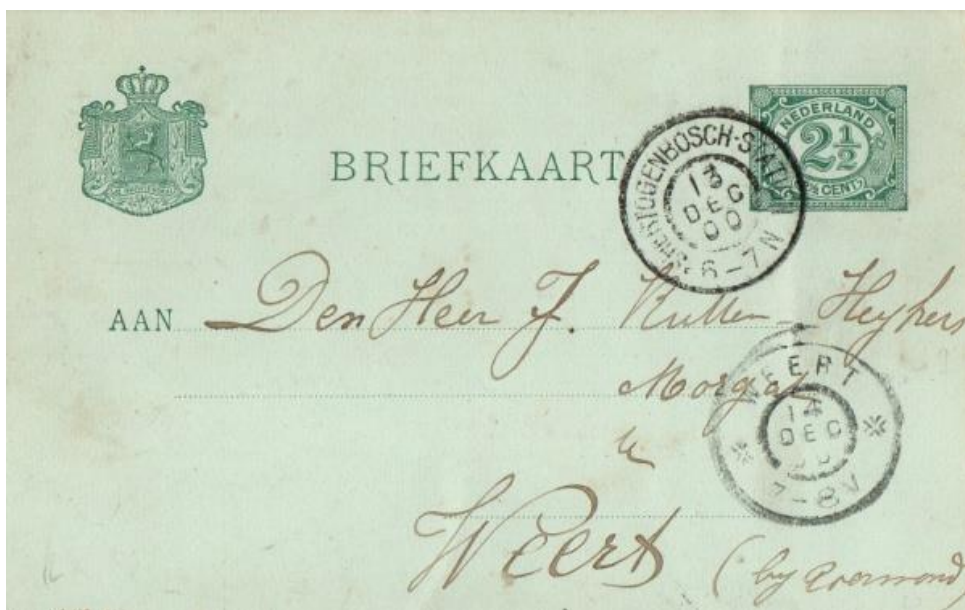 BRIEFKAART
NEDERLAND
2½
CENT
'S HERTOGENBOSCH-STAT
13
DEC
00
6-7N
AAN Den Heer J. Rutten Heyhers
WEERT
DEC
7-8V
Weert
(by Roermond)